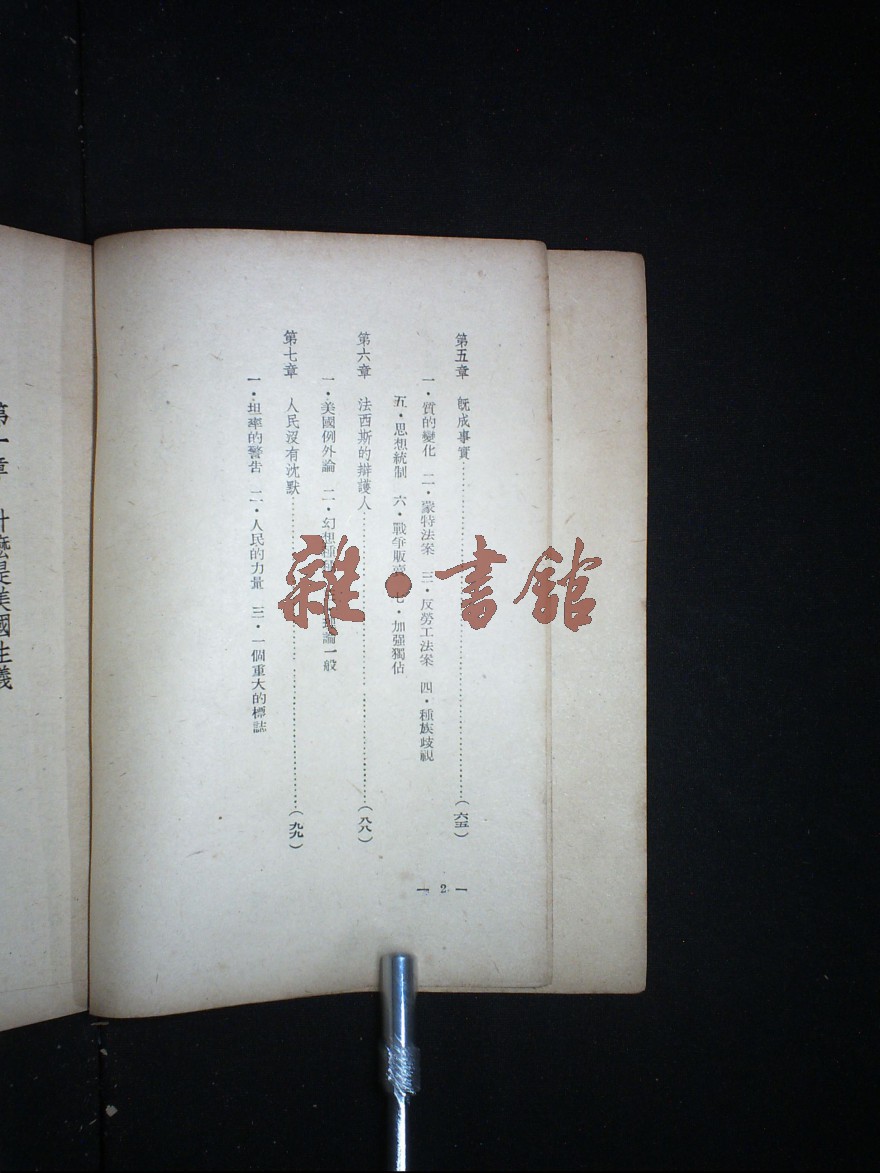 第五章 既成事實……(六五)
一・質的變化 二・蒙特法案 三・反勞工法案 四・種族歧視
五・思想統制 六・戰爭販賣 七・加强獨估
第六章 法西斯的辯護人……(八八)
一・美國例外論 二・幻想 論一般
第七章 人民沒有沈默……(九九)
一・坦率的警告 二・人民的力量 三・一個重大的標誌
— 2 —
第一章 什麼是美國主義
雜・書館